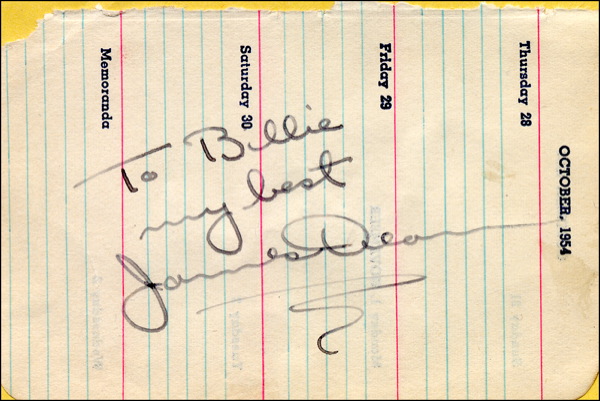 OCTOBER, 1954
Thursday 28
Friday 29
Saturday 30
Memoranda
To Billie
my best
James Dean